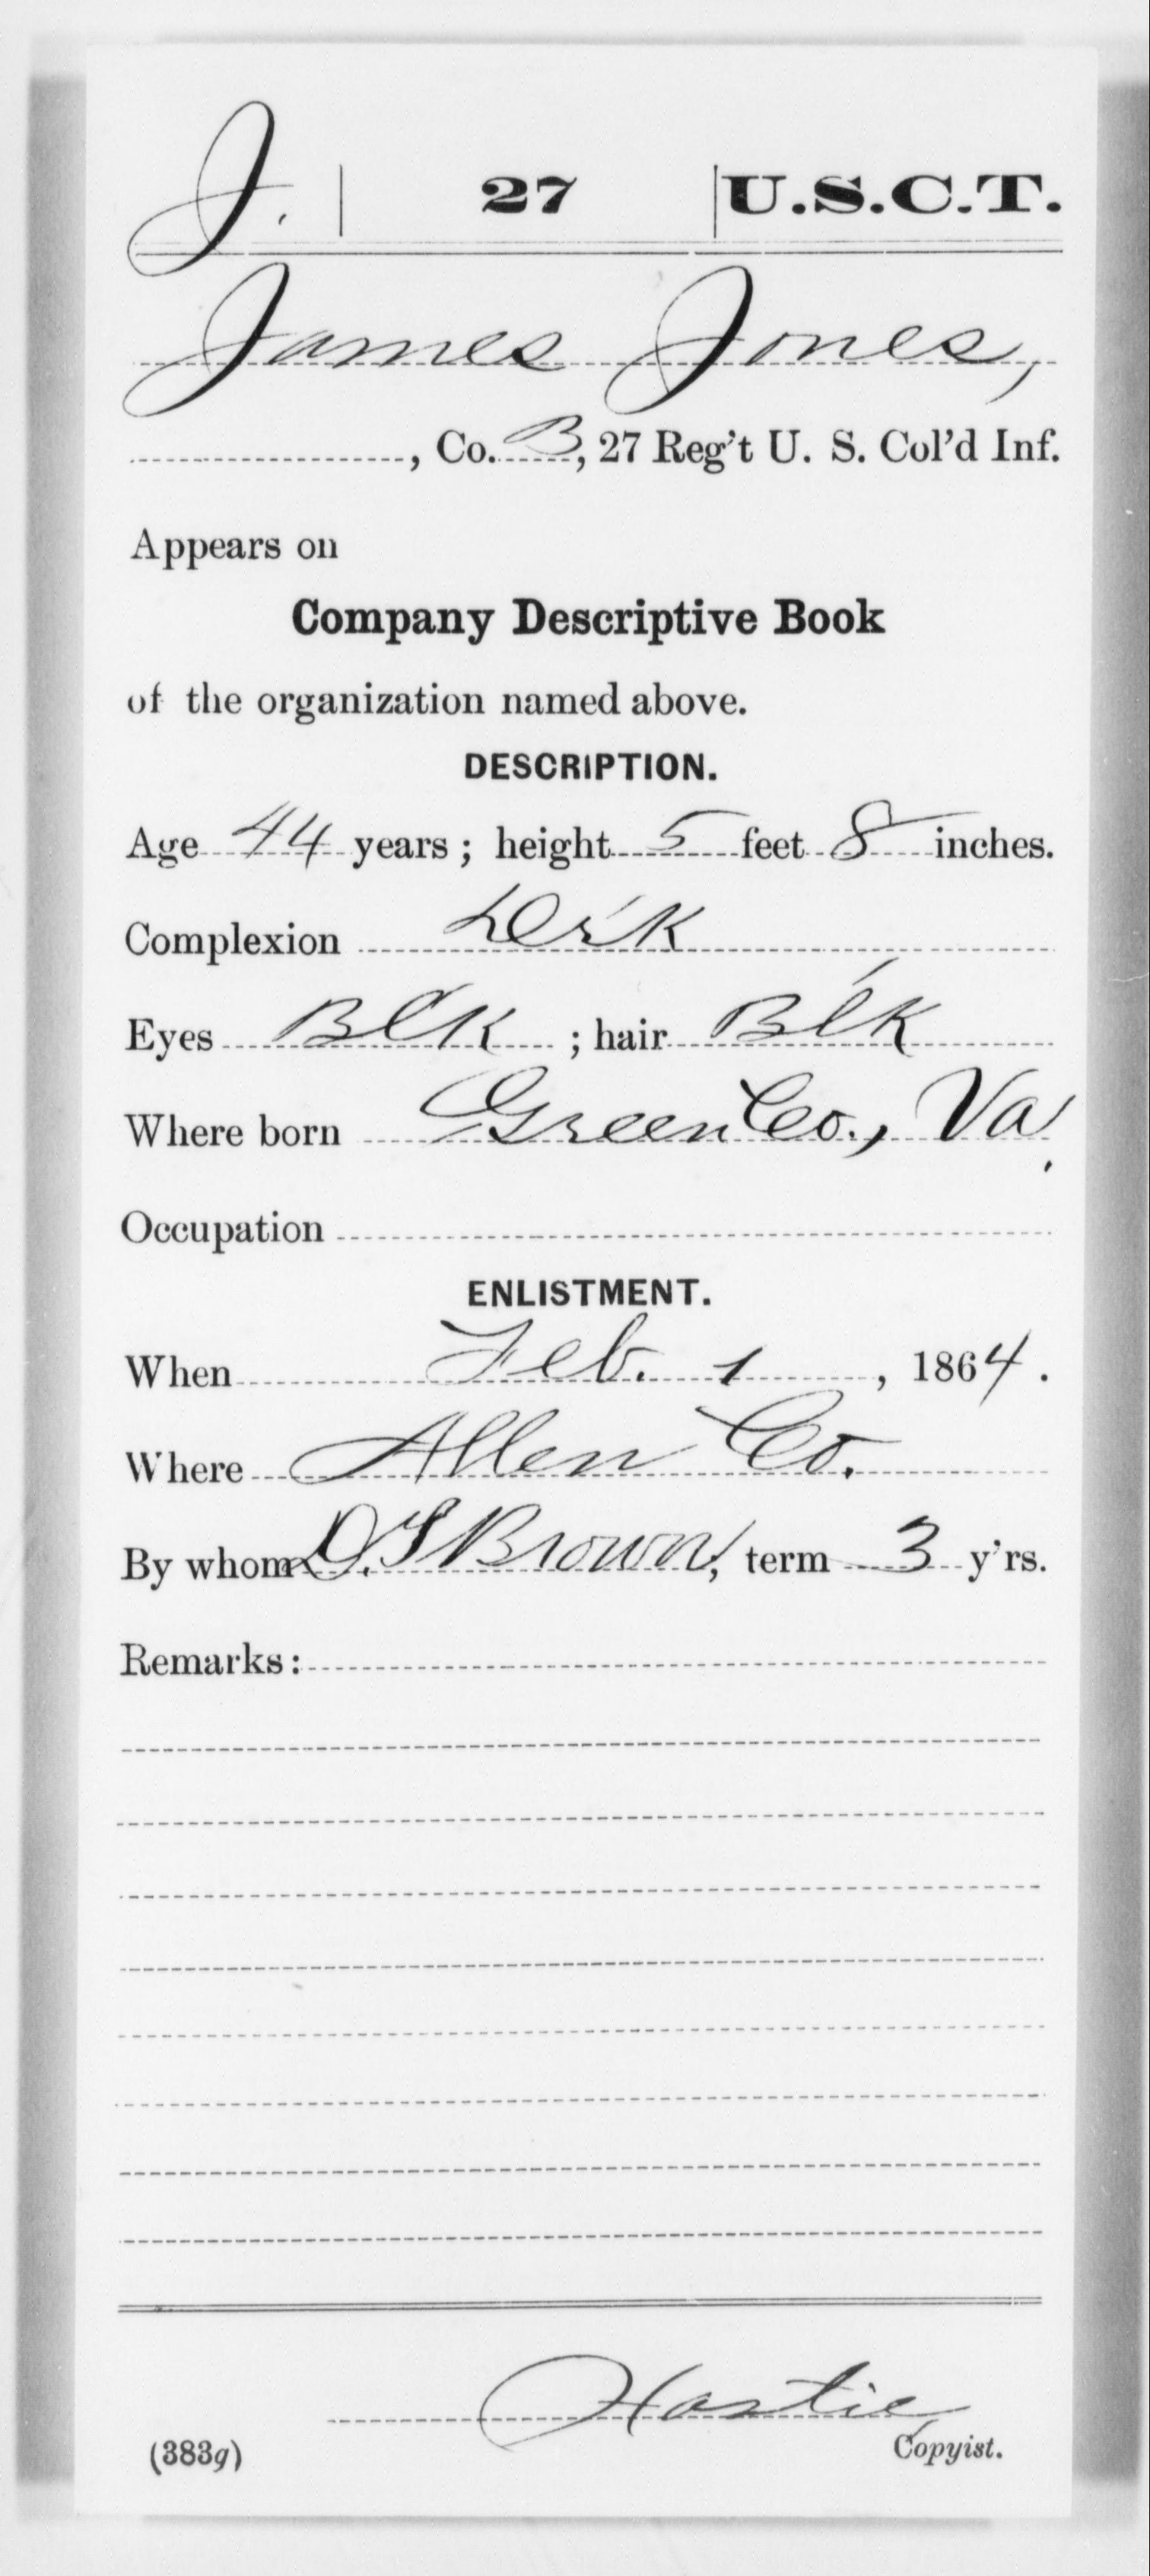 J. | 27 | U.S.C.T.
James Jones,
, Co. B, 27 Reg't U. S. Col'd Inf.
Appears on
Company Descriptive Book
of the organization named above.
DESCRIPTION.
Age 44 years; height 5 feet 8 inches.
Complexion
Eyes Blk ; hair Blk
Where born Green Co., Va.
Occupation
ENLISTMENT.
When Feb. 1, 1864.
Where Allen Co.
By whom Brown, term 3 y'rs.
Remarks:
Hastie
(383g) Copyist.